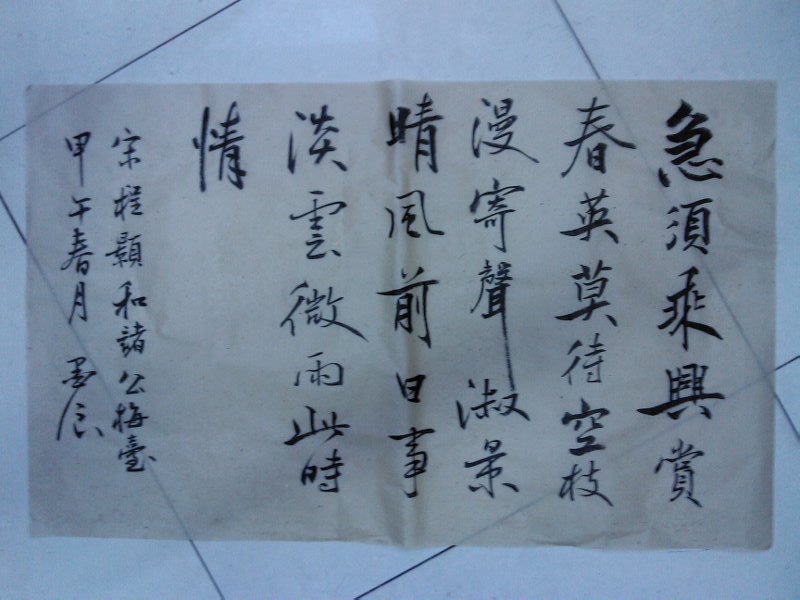 急須乘興賞
春英莫待空枝
漫寄聲淑景
晴風前日事
淡雲微雨此時
情
宋程顥和諸公梅臺
甲午春月 墨辰